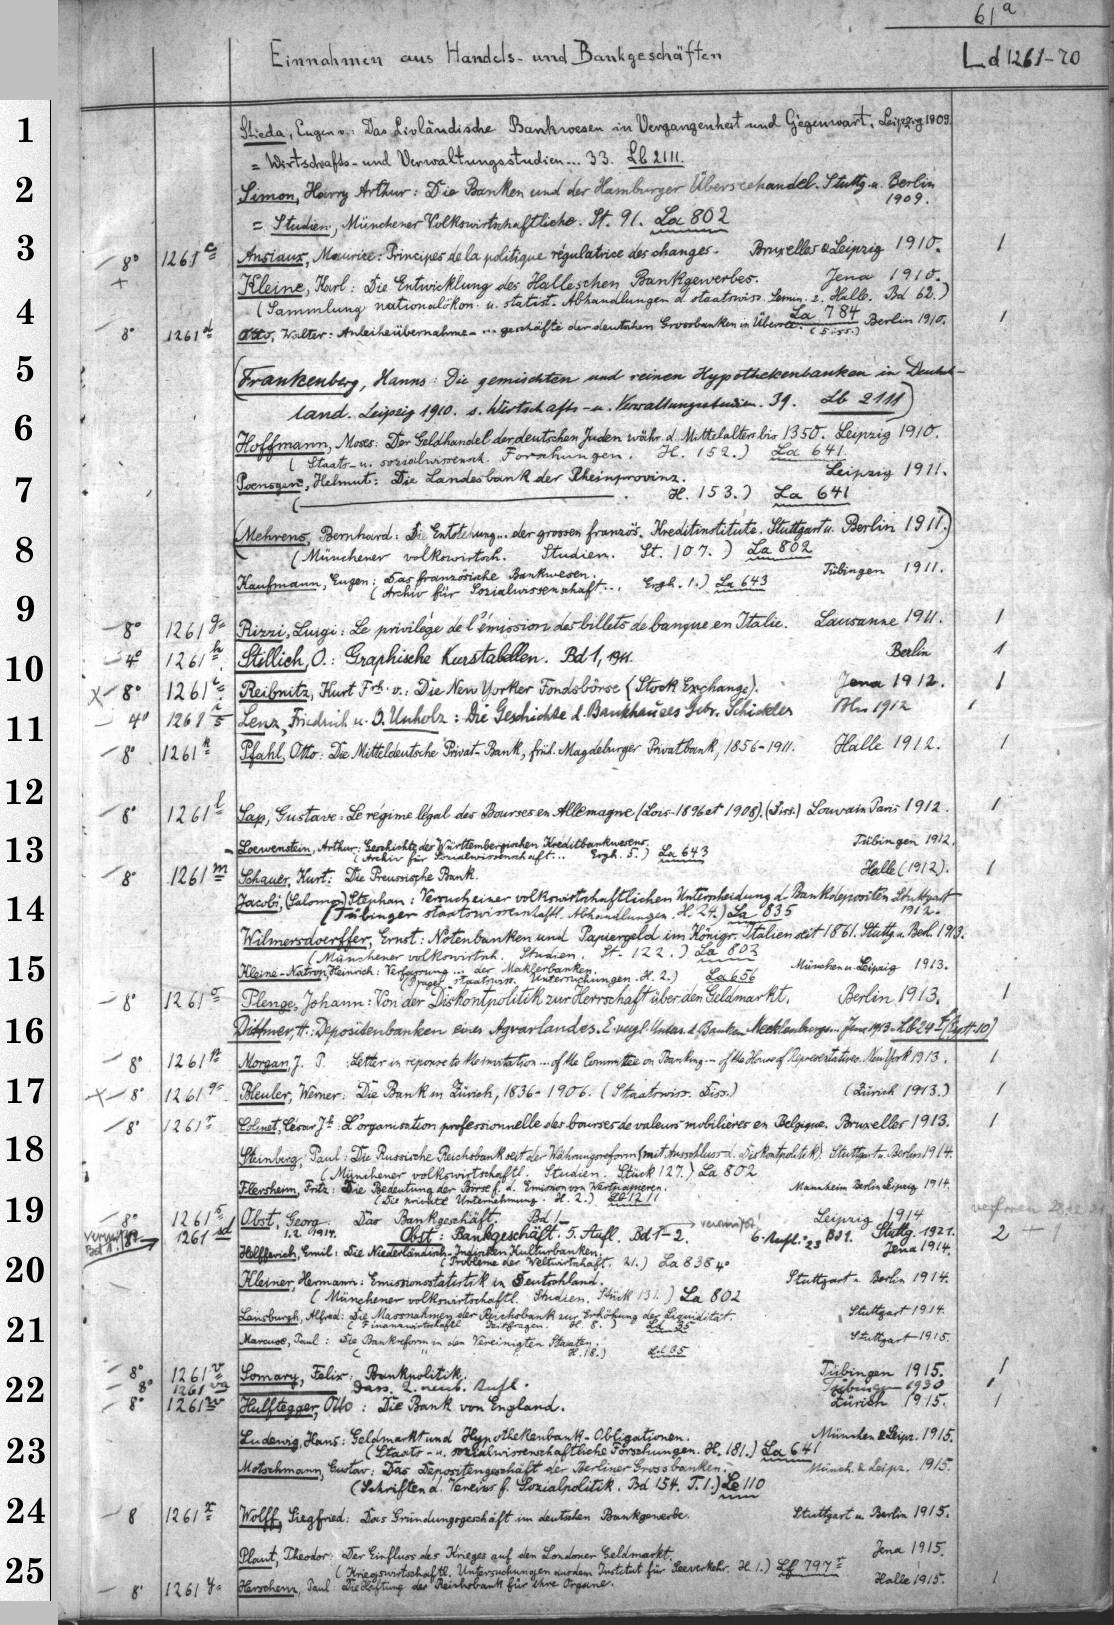 61 a
Einnahmen aus Handels- und Bankgeschäften Ld 1261-70
1
Stieda, Eugen v.: Das Livländische Bankwesen in Vergangenheit und Gegenwart. Leipzig 1909.
= Wirtschafts- und Verwaltungsstudien... 33. Lb 2111.
2
Simon, Harry Arthur: Die Banken und der Hamburger Überseehandel. Stuttg. u. Berlin
1909.
= Studien, Münchener Volkswirtschaftliche. St. 91. La 802
3
8° 1261 c Ansiaux, Maurice: Principes de la politique régulatrice des changes. Bruxelles & Leipzig 1910. 1
Kleine, Karl: Die Entwicklung des Halleschen Bankgewerbes. Jena 1910.
(Sammlung nationalökon. u. statist. Abhandlungen d. staatswiss. Semin. z. Halle. Bd 62.)
4
La 784
8° 1261 d Otto, Walter: Anleiheübernahme- ... geschäfte der deutschen Grossbanken in Übersee (Diss.) Berlin 1910. 1
5
(Frankenberg, Hanns: Die gemischten und reinen Hypothekenbanken in Deutsch-
land. Leipzig 1910. s. Wirtschafts- u. Verwaltungsstudien. 39. Lb 2111)
6
Hoffmann, Moses: Der Geldhandel der deutschen Juden währ. d. Mittelalters bis 1350. Leipzig 1910.
(Staats- u. sozialwissensch. Forschungen. H. 152.) La 641
7
Poensgen, Helmut: Die Landesbank der Rheinprovinz. Leipzig 1911.
( H. 153.) La 641
8
(Mehrens, Bernhard: Die Entstehung... der grossen französ. Kreditinstitute. Stuttgart u. Berlin 1911.)
(Münchener volkswirtsch. Studien. St. 107.) La 802
Kaufmann, Eugen: Das französische Bankwesen. Tübingen 1911.
(Archiv für Sozialwissenschaft... Ergh. 1.) La 643
9
8° 1261 g Rizzi, Luigi: Le privilége de l'émission des billets de banque en Italie. Lausanne 1911. 1
10
4° 1261 h Stillich, O.: Graphische Kurstabellen. Bd 1, 1911. Berlin 1
x 8° 1261 i Reibnitz, Kurt Frh. v.: Die New Yorker Fondsbörse (Stock Exchange). Jena 1912. 1
11
4° 1261 i/5 Lenz, Friedrich u. O. Unholz: Die Geschichte d. Bankhauses Gebr. Schickler 1912 1
8° 1261 k Pfahl, Otto: Die Mitteldeutsche Privat-Bank, früh. Magdeburger Privatbank, 1856-1911. Halle 1912. 1
12
8° 1261 l Sap, Gustave: Le régime légal des Bourses en Allemagne (Lois 1896 et 1908). (Diss.) Louvain Paris 1912. 1
13
Loewenstein, Arthur: Geschichte des Württembergischen Kreditbankwesens. Tübingen 1912.
(Archiv für Sozialwissenschaft... Ergh. 5.) La 643
8° 1261 m Schauer, Kurt: Die Preussische Bank. Halle (1912). 1
14
Jacobi, (Salomo) Stephan: Versuch einer volkswirtschaftlichen Unterscheidung d. Bankdepositen Stuttgart
(Tübinger staatswissenschaftl. Abhandlungen. H. 24.) La 835 1912.
Wilmersdoerffer, Ernst: Notenbanken und Papiergeld im Königr. Italien seit 1861. Stuttg. u. Berl. 1913.
15
(Münchener volkswirtsch. Studien. St. 122.) La 802
Kleine-Natrop, Heinrich: Verfassung ... der Maklerbanken. München u. Leipzig 1913.
(Prager staatswiss. Untersuchungen. H. 2.) La 656
8° 1261 o Plenge, Johann: Von der Diskontpolitik zur Herrschaft über den Geldmarkt. Berlin 1913. 1
16
Dittmer, H.: Depositenbanken eines Agrarlandes. E. vergl. Unters. d. Banken Mecklenburgs... Jena 1913
8° 1261 p Morgan, J. P. : Letter in reponse to the invitation ... of the Committee on Banking ... of the House of Representatives. New York 1913. 1
17
x 8° 1261 q Bleuler, Werner: Die Bank in Zürich, 1836-1906. (Staatswiss. Diss.) (Zürich 1913.) 1
8° 1261 r Colinet, César Jh. L'organisation professionnelle des bourses de valeurs mobilières en Belgique. Bruxelles 1913. 1
18
Steinberg, Paul: Die Russische Reichsbank seit der Währungsreform (mit Ausschluss d. Diskontpolitik). Stuttgart u. Berlin 1914.
(Münchener volkswirtschaftl. Studien. Stück 127.) La 802
Flersheim, Fritz: Die Bedeutung der Börse f. d. Emission von Wertpapieren. Mannheim Berlin Leipzig 1914.
(Die private Unternehmung. H. 2.)
19
8° 1261 s Obst, Georg. Das Bankgeschäft. Bd 1- Leipzig 1914
1.2. 1914.
8° 1261 sd Obst: Bankgeschäft. 5. Aufl. Bd 1-2. 6. Aufl. '23 Bd 1. Stuttg. 1921. 2 + 1
Helfferich, Emil: Die Niederländisch-Indischen Kulturbanken. Jena 1914.
20
(Probleme der Weltwirtschaft. 21.) La 838 4°
Kleiner, Hermann: Emissionsstatistik in Deutschland. Stuttgart u. Berlin 1914.
(Münchener volkswirtschaftl. Studien. Stück 131.) La 802
21
Lansburgh, Alfred: Die Massnahmen der Reichsbank zur Erhöhung der Liquidität. Stuttgart 1914.
(Finanzwirtschaftl. Zeitfragen. H. 8.)
Marcuse, Paul: Die Bankreform in den Vereinigten Staaten. Stuttgart 1915.
( " H. 18.)
22
8° 1261 v Somary, Felix: Bankpolitik. Tübingen 1915. 1
8° 1261 va Dass. 2. neub. Aufl. Tübingen 1930 1
8° 1261 w Hulftegger, Otto: Die Bank von England. Zürich 1915. 1
23
Ludewig, Hans: Geldmarkt und Hypothekenbank-Obligationen. München & Leipz. 1915.
(Staats- u. sozialwissenschaftliche Forschungen. H. 181.) La 641
Motschmann, Gustav: Das Depositengeschäft der Berliner Grossbanken. Münch. & Leipz. 1915.
(Schriften d. Vereins f. Sozialpolitik. Bd 154. T. 1.) Le 110
24
8 1261 x Wolff, Siegfried: Das Gründungsgeschäft im deutschen Bankgewerbe. Stuttgart u. Berlin 1915.
25
Plaut, Theodor: Der Einfluss des Krieges auf den Londoner Geldmarkt. Jena 1915.
(Kriegswirtschaftl. Untersuchungen aus dem Institut für Seeverkehr. H. 1.) Lf 797
8° 1261 y Paul Die Haftung der Reichsbank für ihre Organe. Halle 1915. 1